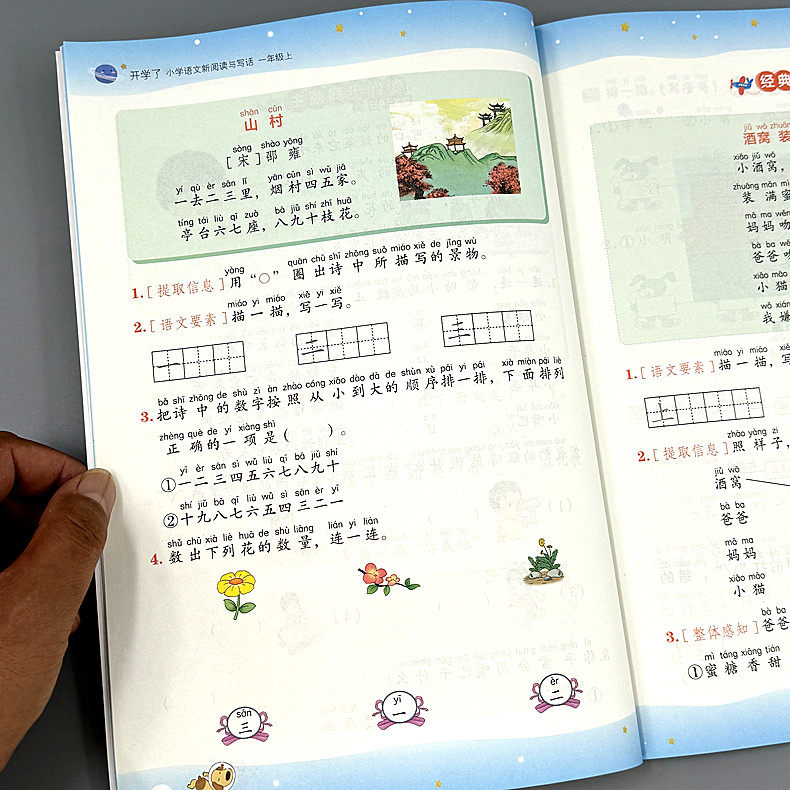 开学了 小学语文新阅读与写话 一年级上
shān cūn
山 村
sòng shào yōng
[宋]邵 雍
yí qù èr sān lǐ yān cūn sì wǔ jiā
一去二三里，烟村四五家。
tíng tái liù qī zuò bā jiǔ shí zhī huā
亭台六七座，八九十枝花。
yòng quān chū shī zhōng suǒ miáo xiě de jǐng wù
1.[提取信息]用“○”圈出诗中所描写的景物。
miáo yi miáo xiě yi xiě
2.[语文要素]描一描，写一写。
一 二 三
bǎ shī zhōng de shù zì àn zhào cóng xiǎo dào dà de shùn xù pái yi pái xià miàn pái liè
3.把诗中的数字按照从小到大的顺序排一排，下面排列
zhèng què de yí xiàng shì
正确的一项是( )。
yī èr sān sì wǔ liù qī bā jiǔ shí
①一二三四五六七八九十
shí jiǔ bā qī liù wǔ sì sān èr yī
②十九八七六五四三二一
shǔ chū xià liè huā de shù liàng lián yi lián
4.数出下列花的数量，连一连。
sān yī èr
三 一 二
经典
jiǔ wō zhuāng
酒窝 装
xiǎo jiǔ wō
小酒窝，
zhuāng mǎn mì
装 满 蜜
mā ma wěn
妈妈吻
bà ba
爸爸吻
xiǎo māo
小猫
wǒ xián
我嫌
miáo yi miáo
1.[语文要素]描一描，写
上
zhào yàng zi
2.[提取信息]照样子，
jiǔ wō
酒窝
bà ba
爸爸
mā ma
妈妈
xiǎo māo
小猫
bà ba
3.[整体感知]爸爸
mì táng xiāng tián
①蜜糖香甜